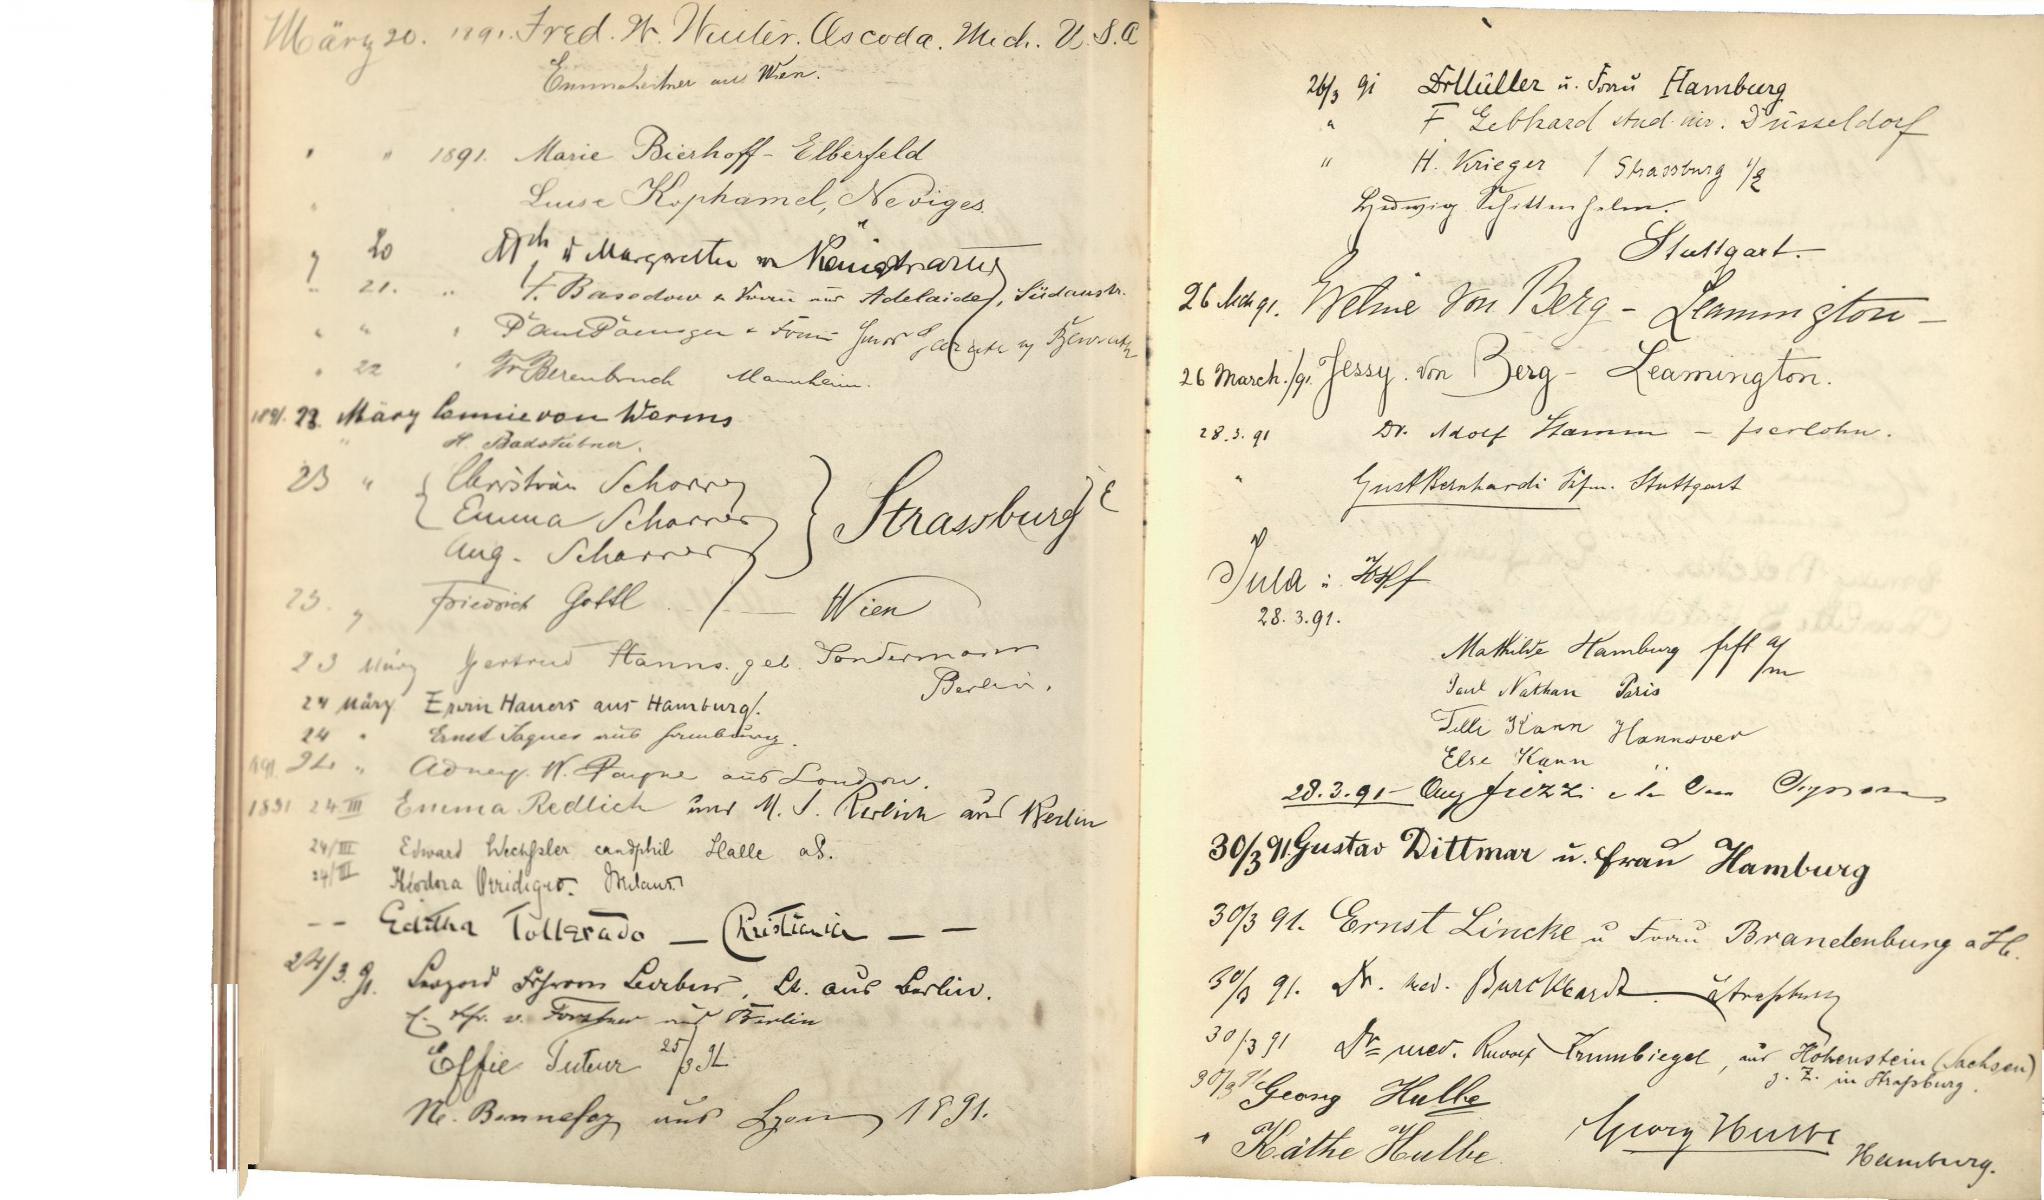 März 20. 1891. Fred. W. Winter. Oscoda. Mich. U.S.A
Emma aus Wien.
" " 1891. Marie Bierhoff - Elberfeld
Luise Kophamel, Neviges.
" 20 Margarethe von
" 21. " F. Basedow & Frau aus Adelaide, Südaustr.
" " " Frau
" 22 " Fr Berenbruch Mannheim.
1891. 23. März von Worms
" H. Badstübner.
23 " Christian Scharrer
Emma Scharrer Strassburg i/E
Aug. Scharrer
23. " Friedrich Gottl — Wien
23 März Gertrud Hanns. geb. Sondermann
Berlin.
24 März Erwin Hauers aus Hamburg.
24 " Ernst aus Hamburg.
1891. 24 " Adney. W. Payne aus London.
1891 24 III Emma Redlich und M. S. Redlich aus Berlin
24/III Edward Wechssler cand phil Halle a/S.
24/III
-- Editha Tollerado — Christiania --
24/3. 91. Lt. aus Berlin.
v. Forstner aus Berlin
Effie Tuteur 25/3 91
Bonnefoy aus Lyon 1891.
26/3 91 Dr Müller u. Frau Hamburg
" F Gebhard stud. Düsseldorf
" H. Krieger / Strassburg i/E
Ludwig Schittenhelm.
Stuttgart.
26 Mch 91. von Berg - Leamington -
26 March./91. Jessy. von Berg - Leamington.
28.3.91 Dr. Adolf Hamm - Iserlohn.
" Gust Bernhardi Stuttgart
Jula u.
28.3.91.
Mathilde Hamburg frft a/m
Paul Nathan Paris
Tilli Kann Hannover
Else Kann "
28.3.91 - Aug
30/3 91. Gustav Dittmar u. Frau Hamburg
30/3 91. Ernst Lincke u Frau Brandenburg a H.
30/3 91. Dr. med. Burckhardt. Straßburg
30/3 91 Dr. med. Rudolf Krumbiegel, aus Hohenstein (Sachsen)
z. Z. in Straßburg.
30/3 91 Georg Hulbe
" Käthe Hulbe Georg Hulbe
Hamburg.